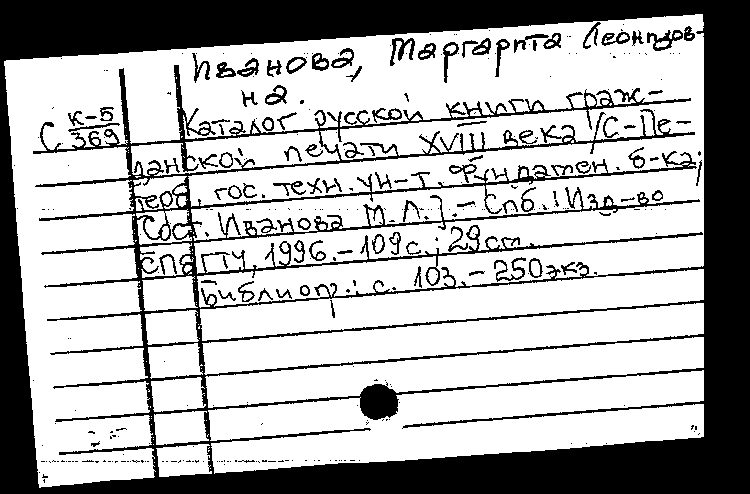 Иванова, Маргарита Леонидов-
на.
С К-5
369
Каталог русской книги граж-
данской печати XVIII века /С-Пе-
терб. гос. техн. ун-т. Фундамен. б-ка;
Сост. Иванова М.Л.].- Спб.: Изд-во
СПбГТУ, 1996.-109с.; 29см.
Библиогр.: с. 103.-250экз.